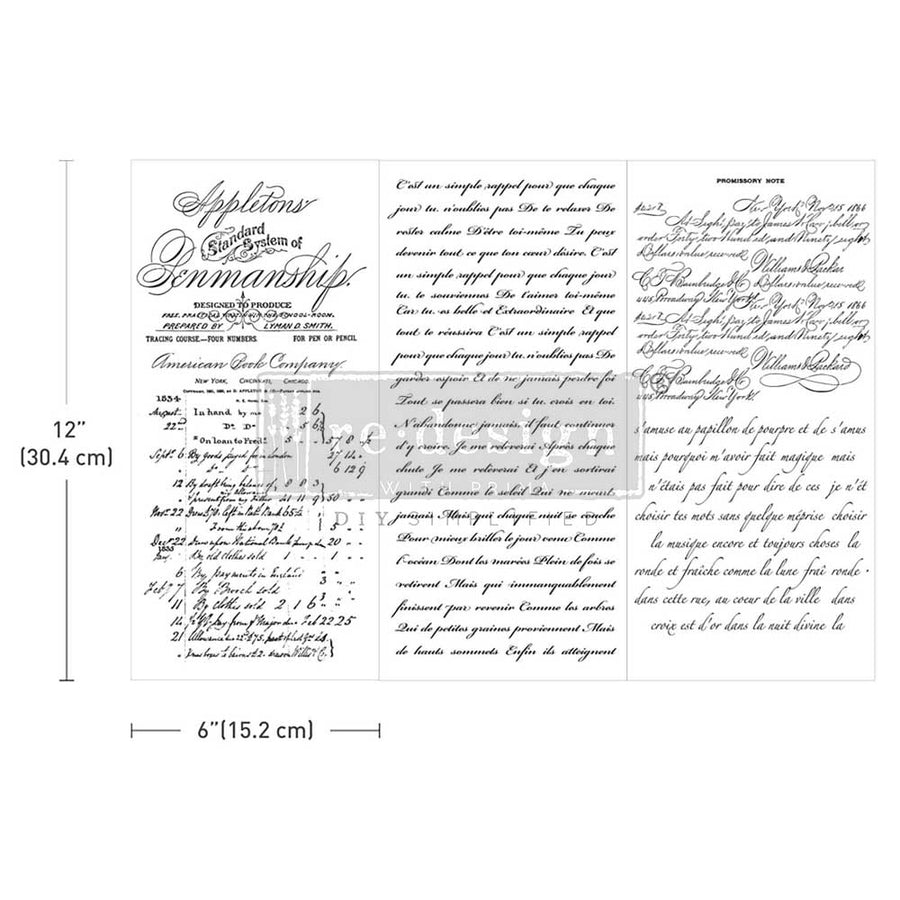 Appletons'
Standard
System of
Penmanship.
DESIGNED TO PRODUCE
FREE, PRACTICAL WRITING IN THE SCHOOL-ROOM.
PREPARED BY LYMAN D. SMITH.
TRACING COURSE—FOUR NUMBERS. FOR PEN OR PENCIL
American Book Company.
NEW YORK, CINCINNATI, CHICAGO.
1854
August In hand by me 2 6
22 Do Do 5 6
" On loan to Fred
Sept. 6 By goods
" Do 6 12 9
12 By draft being balance of 8 8 3
Nov. 22
" From the above
Dec 22 Drew upon National Bank 20
1855
Jan. By old clothes sold 1 1 1
6 By payments in 3
Feb 7 7 By sold 3
11 By clothes sold 2 1 6
14 pay from Major due Feb 22 25
21 Allowance
C'est un simple rappel pour que chaque
jour tu n'oublies pas De te relaxer De
rester calme D'être toi-même Tu peux
devenir tout ce que ton cœur désire. C'est
un simple rappel pour que chaque jour
tu te souviennes De t'aimer toi-même
Car tu es belle et Extraordinaire Et que
tout te réussira C'est un simple rappel
pour que chaque jour tu n'oublies pas De
garder espoir Et de ne jamais perdre foi
Tout se passera bien si tu crois en toi.
N'abandonne jamais, il faut continuer
d'y croire, Je me relèverai Après chaque
chute Je me relèverai Et j'en sortirai
grandi Comme le soleil Qui ne meurt
jamais Mais qui chaque nuit se couche
Pour mieux briller le jour venu Comme
l'océan Dont les marées Plein de fois se
retirent Mais qui immanquablement
finissent par revenir Comme les arbres
Qui de petites graines proviennent Mais
de hauts sommets Enfin ils atteignent
PROMISSORY NOTE
New York, Nov. 15 1866
At Sight, pay to James W. Carr; bell or
order Forty two Hundred and Ninety eight
Dollars value received
Williams & Packard
C. F. Bainbridge & Co
445, Broadway New York.
New York, Nov. 15 1866
At Sight, pay to James W. Carr; bell or
order Forty two Hundred and Ninety eight
Dollars value received
Williams & Packard
C. F. Bainbridge & Co
445, Broadway New York.
s'amuse au papillon de pourpre et de s'amus
mais pourquoi m'avoir fait magique mais
n'étais pas fait pour dire de ces je n'ét
choisir tes mots sans quelque méprise choisir
la musique encore et toujours choses la
ronde et fraîche comme la lune fraî ronde
dans cette rue, au coeur de la ville dans
croix est d'or dans la nuit divine la
re·design
WITH PRIMA
DIY SIMPLIFIED
12"
(30.4 cm)
6"(15.2 cm)